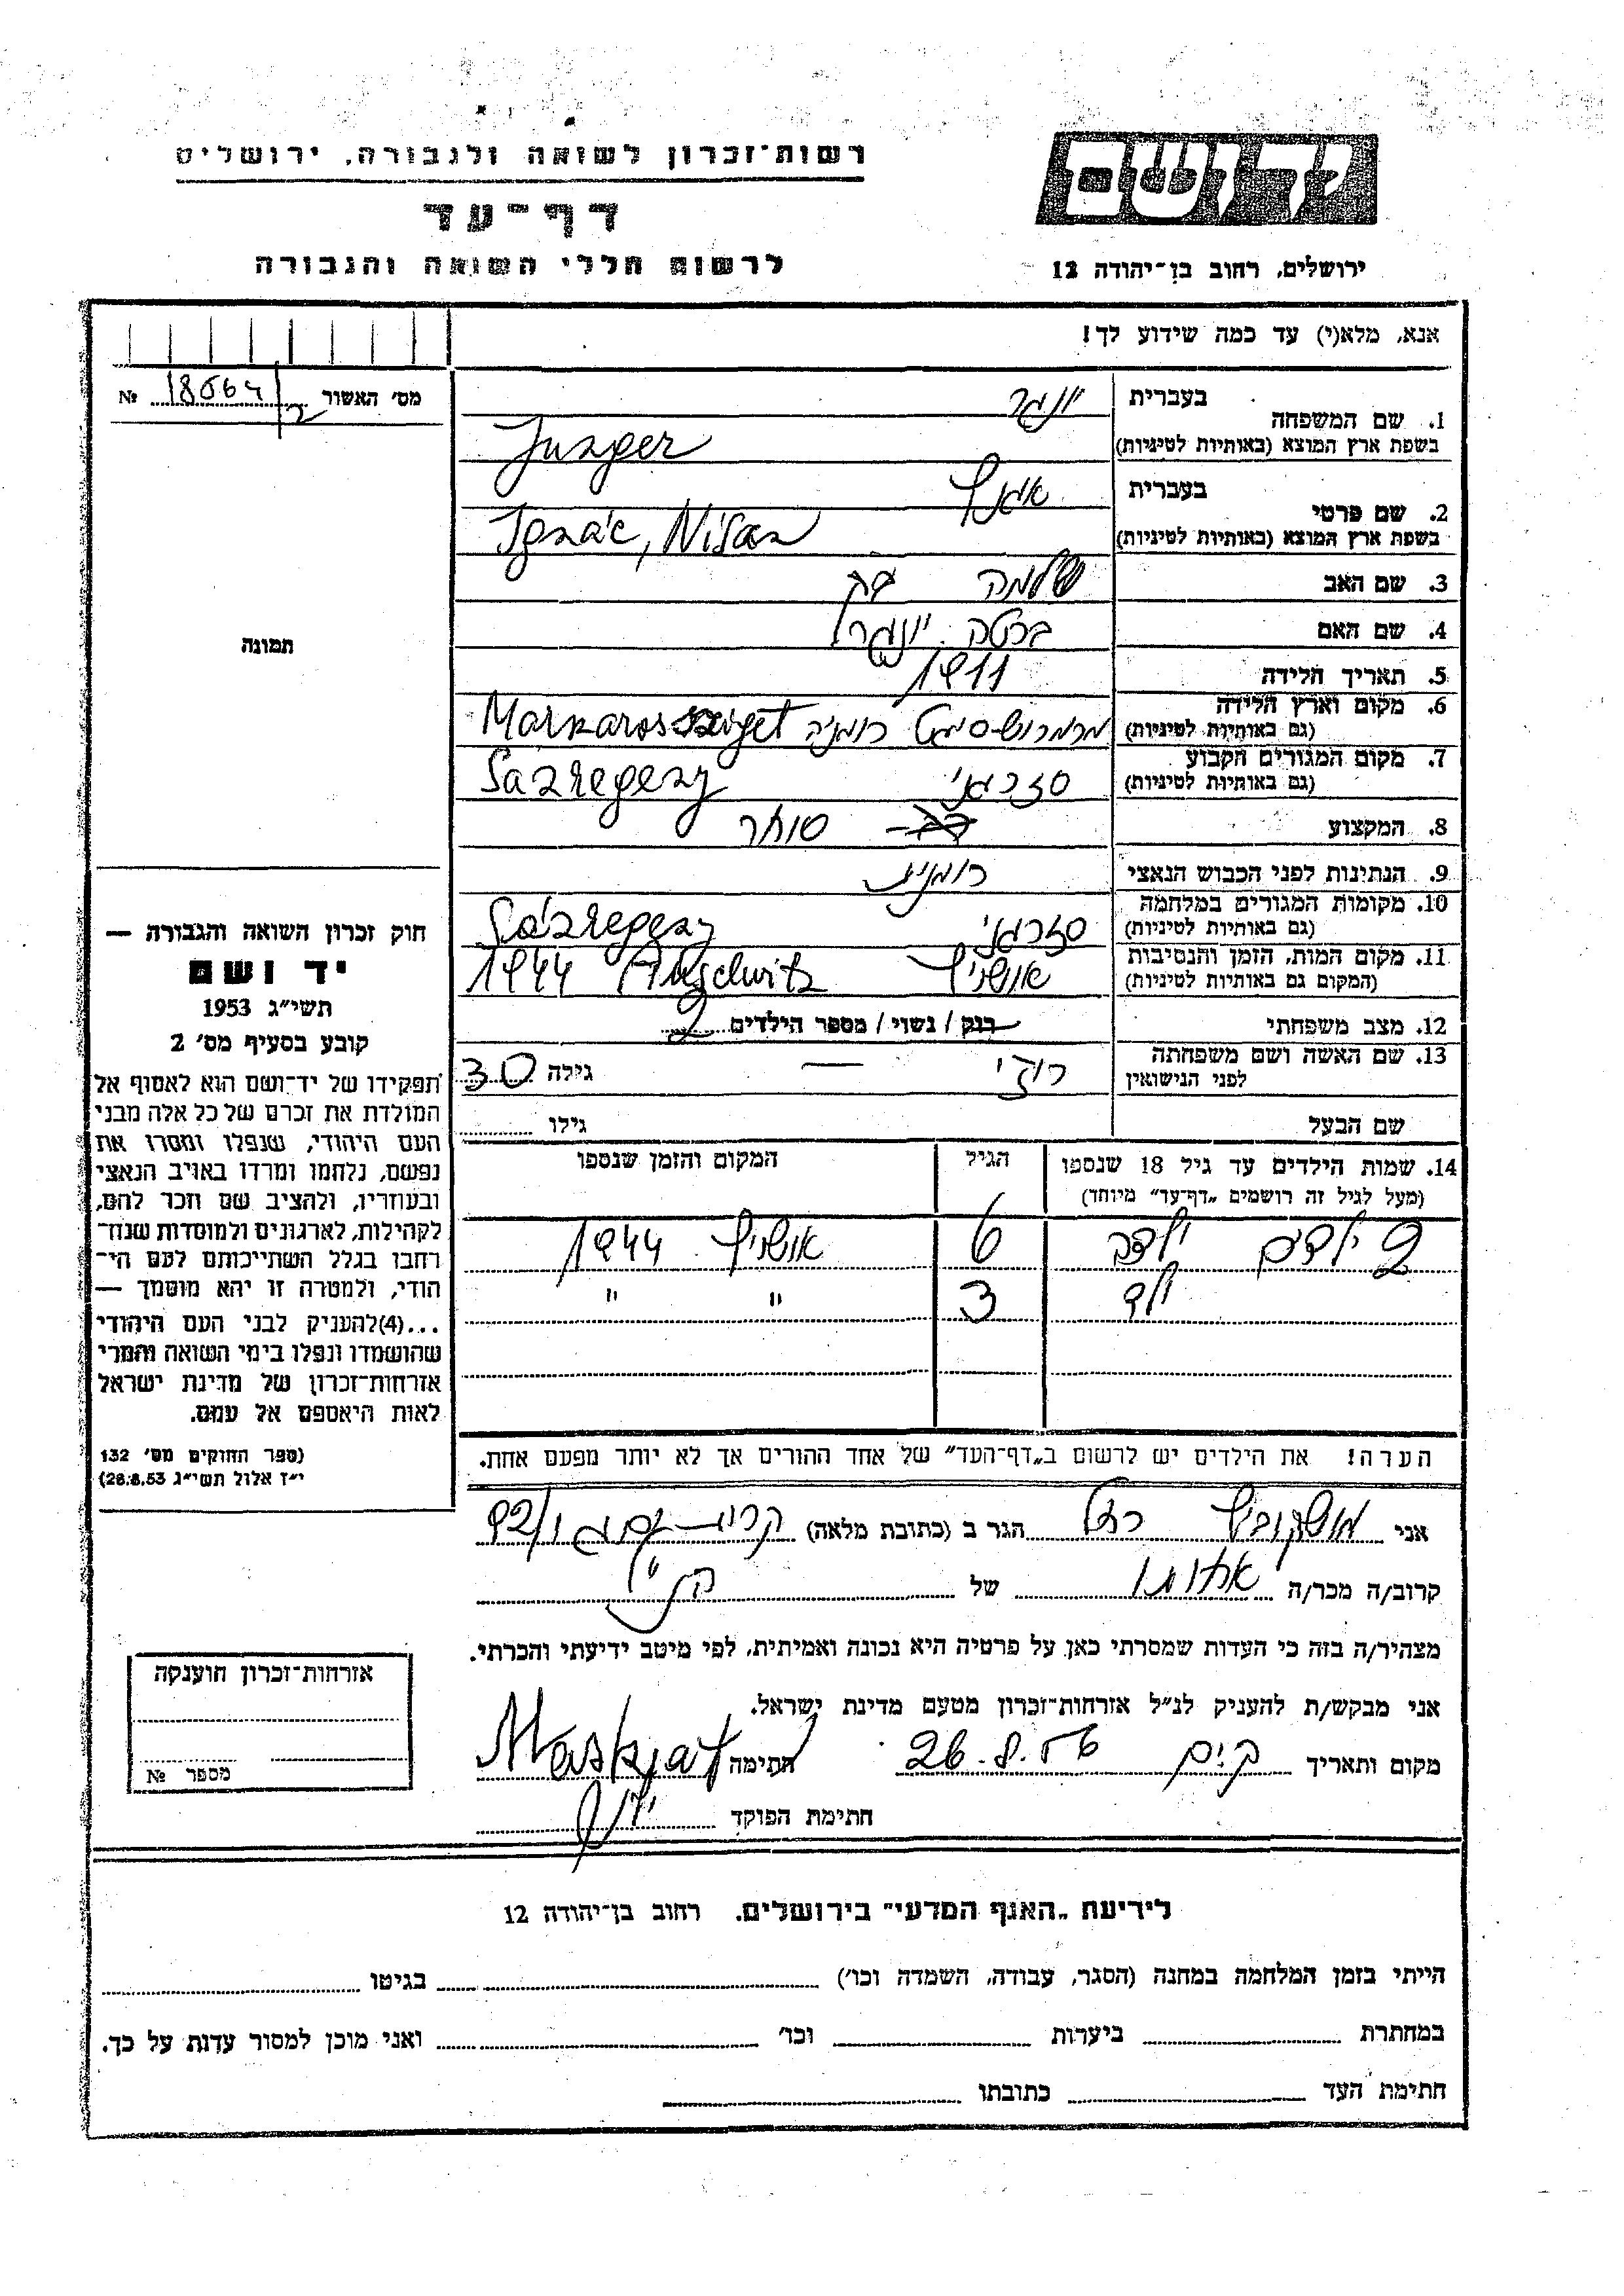 רשות־זכרון לשואה ולגבורה, ירושלים
דף־עד
לרשום חללי השואה והגבורה
יד ושם
ירושלים, רחוב בן־יהודה 12
אנא, מלא(י) עד כמה שידוע לך!
מס׳ האשור № 18564/2
תמונה
1. שם המשפחה בעברית יונגר
בשפת ארץ המוצא (באותיות לטיניות) Junger
2. שם פרטי בעברית
בשפת ארץ המוצא (באותיות לטיניות) Ignác, Nisan
3. שם האב שלמה
4. שם האם ברטה יונגר
5. תאריך הלידה 1911
6. מקום וארץ הלידה
(גם באותיות לטיניות) מרמרוש סיגט רומניה
7. מקום המגורים הקבוע
(גם באותיות לטיניות)
8. המקצוע סוחר
9. הנתינות לפני הכבוש הנאצי רומנית
10. מקומות המגורים במלחמה
(גם באותיות לטיניות)
11. מקום המות, הזמן והנסיבות
(המקום גם באותיות לטיניות) אושויץ Auschwitz 1944
12. מצב משפחתי רווק / נשוי / מספר הילדים 2
13. שם האשה ושם משפחתה
לפני הנישואין רוזי — גילה 30
שם הבעל גילו
14. שמות הילדים עד גיל 18 שנספו הגיל המקום והזמן שנספו
(מעל לגיל זה רושמים „דף־עד״ מיוחד)
2 ילדים ילדה 6 אושויץ 1944
ילד 3 " "
הערה! את הילדים יש לרשום ב„דף־העד״ של אחד ההורים אך לא יותר מפעם אחת.
חוק זכרון השואה והגבורה —
יד ושם
תשי״ג 1953
קובע בסעיף מס׳ 2
תפקידו של יד־ושם הוא לאסוף אל
המולדת את זכרם של כל אלה מבני
העם היהודי, שנפלו ומסרו את
נפשם, נלחמו ומרדו באויב הנאצי
ובעוזריו, ולהציב שם וזכר להם,
לקהילות, לארגונים ולמוסדות שנח־
רבו בגלל השתייכותם לעם הי־
הודי, ולמטרה זו יהא מוסמך —
...(4)להעניק לבני העם היהודי
שהושמדו ונפלו בימי השואה והמרי
אזרחות־זכרון של מדינת ישראל
לאות היאספם אל עמם.
(ספר החוקים מס׳ 132
י״ז אלול תשי״ג 28.8.53)
אני מושקוביץ רחל הגר ב (כתובת מלאה) 92/
קרוב/ה מכר/ה אחותו של הנ״ל
מצהיר/ה בזה כי העדות שמסרתי כאן על פרטיה היא נכונה ואמיתית, לפי מיטב ידיעתי והכרתי.
אני מבקש/ת להעניק לנ״ל אזרחות־זכרון מטעם מדינת ישראל.
מקום ותאריך 26.8.56 חתימה
חתימת הפוקד
אזרחות־זכרון הוענקה
מספר №
לידיעת „האגף המדעי״ בירושלים. רחוב בן־יהודה 12
הייתי בזמן המלחמה במחנה (הסגר, עבודה, השמדה וכו׳) בגיטו
במחתרת ביערות וכו׳ ואני מוכן למסור עדות על כך.
חתימת העד כתובתו